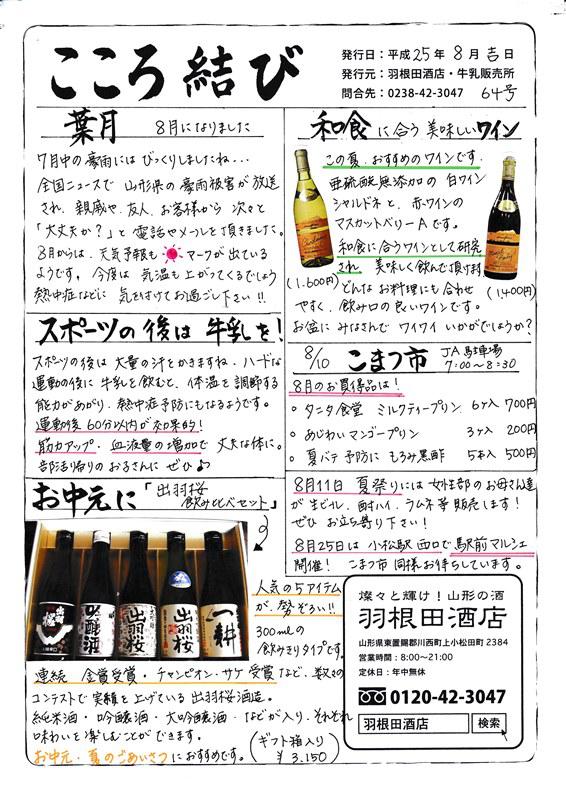 こころ結び
発行日：平成25年 8月吉日
発行元：羽根田酒店・牛乳販売所
問合先：0238-42-3047 64号
葉月 8月になりました
7月中の豪雨にはびっくりしましたね…
全国ニュースで 山形県の豪雨被害が放送
され、親戚や、友人、お客様から 次々と
「大丈夫か？」と電話やメールを頂きました。
8月からは、天気予報も マークが出ている
ようです。今度は 気温も上がってくるでしょう
熱中症などに 気を付けてお過ごし下さい!!
スポーツの後は 牛乳を！
スポーツの後は 大量の汗をかきますね。ハードな
運動の後に 牛乳を飲むと、体温を調節する
能力があがり、熱中症予防にもなるようです。
運動後 60分以内が効果的！
筋力アップ・血液量の増加で 丈夫な体に。
部活帰りのお子さんに ぜひ♪
お中元に「出羽桜
飲み比べセット」
出羽桜
吟醸酒
出羽桜
出羽桜
一耕
人気の5アイテム
が、勢ぞろい!!
300mlの
飲みきりタイプです。
連続 金賞受賞・チャンピオン・サケ 受賞など、数々の
コンテストで実績を上げている 出羽桜酒造。
純米酒・吟醸酒・大吟醸酒・などが入り、それぞれ
味わいを楽しむことができます。
お中元・夏のごあいさつにおすすめです。（ギフト箱入り
￥3,150）
和食に合う美味しいワイン
この夏、おすすめのワインです。
亜硫酸無添加の 白ワイン
シャルドネと、赤ワインの
マスカットベリーAです。
和食に合うワインとして研究
され、美味しく飲んで頂けます
(1,600円)
どんなお料理にも合わせ
(1,400円)
やすく、飲み口の良いワインです。
お盆に みなさんで ワイワイ いかがでしょうか？
8/10 こまつ市 JA駐車場
7:00〜8:30
8月のお買得品は！
○ タニタ食堂 ミルクティープリン 6ケ入 700円
○ あじわいマンゴープリン 3ケ入 200円
○ 夏バテ予防に もろみ黒酢 5本入 500円
8月11日 夏祭りには 女性部のお母さん達
が 生ビール、酎ハイ、ラムネ等 販売します！
ぜひ お立ち寄り下さい！
8月25日は 小松駅西口で 駅前マルシェ
開催！ こまつ市同様お待ちしています。
燦々と輝け！山形の酒
羽根田酒店
山形県東置賜郡川西町上小松田町2384
営業時間：8:00〜21:00
定休日：年中無休
0120-42-3047
羽根田酒店 検索